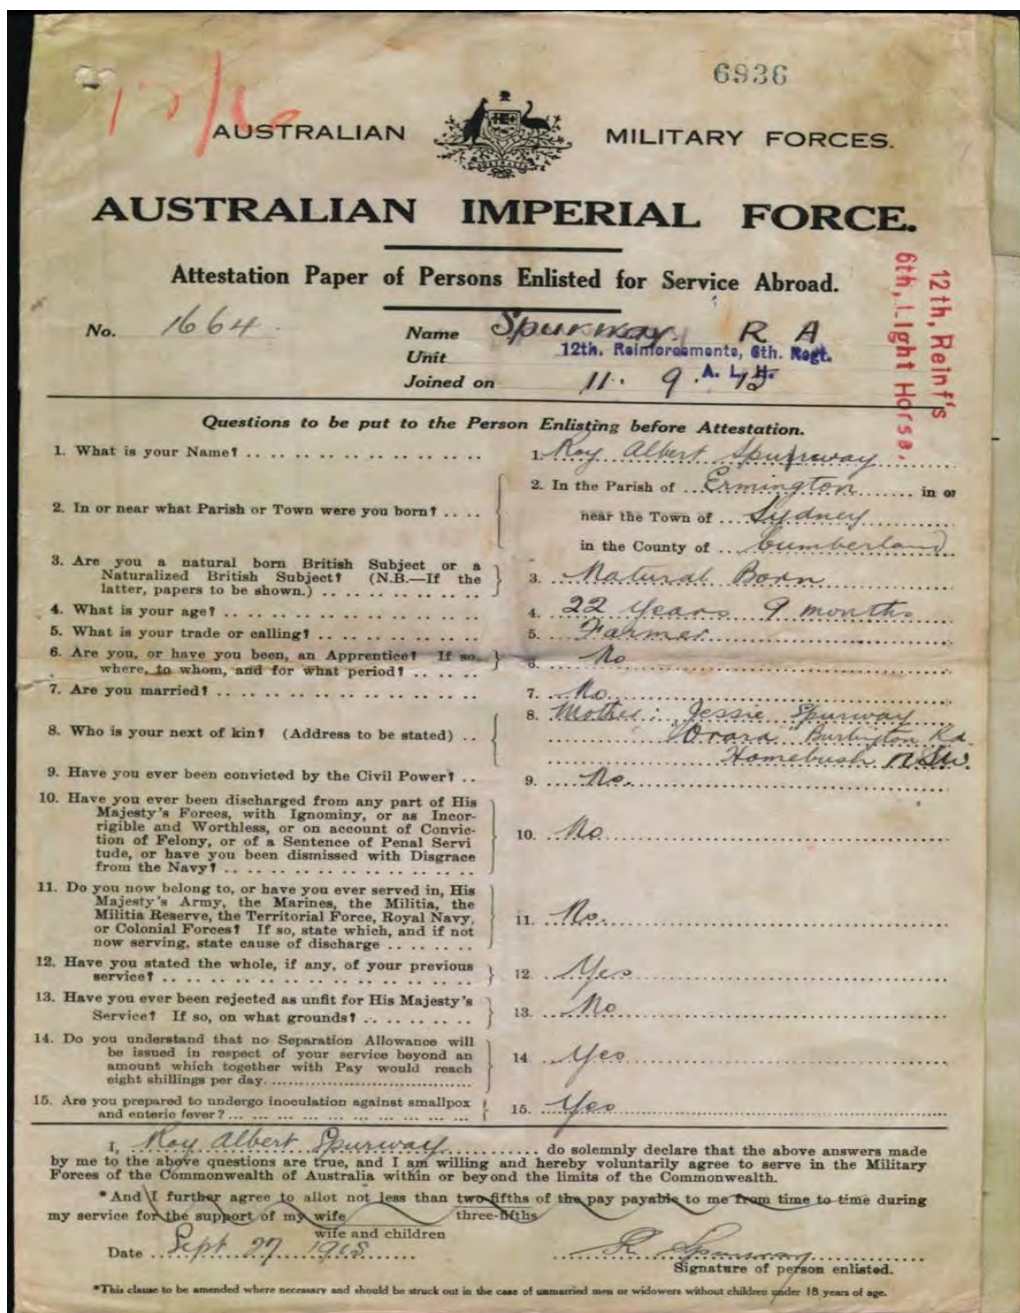 6936
AUSTRALIAN MILITARY FORCES.
AUSTRALIAN IMPERIAL FORCE.
Attestation Paper of Persons Enlisted for Service Abroad.
12th, Reinf's
6th, Light Horse.
No. 1664 Name Spurway R A
Unit 12th. Reinforcements, 6th. Regt.
A. L. H.
Joined on 11. 9. 15
Questions to be put to the Person Enlisting before Attestation.
1. What is your Name? 1. Roy Albert Spurway
2. In or near what Parish or Town were you born? 2. In the Parish of Ermington in or
near the Town of Sydney
in the County of Cumberland
3. Are you a natural born British Subject or a
Naturalized British Subject? (N.B.—If the
latter, papers to be shown.) 3. Natural Born
4. What is your age? 4. 22 years 9 months
5. What is your trade or calling? 5. Farmer
6. Are you, or have you been, an Apprentice? If so,
where, to whom, and for what period? 6. No
7. Are you married? 7. No
8. Who is your next of kin? (Address to be stated) 8. Mother: Jessie Spurway
Burlington Rd
Homebush NSW.
9. Have you ever been convicted by the Civil Power? 9. No.
10. Have you ever been discharged from any part of His
Majesty's Forces, with Ignominy, or as Incor-
rigible and Worthless, or on account of Convic-
tion of Felony, or of a Sentence of Penal Servi
tude, or have you been dismissed with Disgrace
from the Navy? 10. No
11. Do you now belong to, or have you ever served in, His
Majesty's Army, the Marines, the Militia, the
Militia Reserve, the Territorial Force, Royal Navy,
or Colonial Forces? If so, state which, and if not
now serving, state cause of discharge 11. No.
12. Have you stated the whole, if any, of your previous
service? 12 Yes
13. Have you ever been rejected as unfit for His Majesty's
Service? If so, on what grounds? 13. No
14. Do you understand that no Separation Allowance will
be issued in respect of your service beyond an
amount which together with Pay would reach
eight shillings per day. 14 Yes
15. Are you prepared to undergo inoculation against smallpox
and enteric fever? 15. Yes
I, Roy Albert Spurway do solemnly declare that the above answers made
by me to the above questions are true, and I am willing and hereby voluntarily agree to serve in the Military
Forces of the Commonwealth of Australia within or beyond the limits of the Commonwealth.
*And I further agree to allot not less than two-fifths of the pay payable to me from time to time during
three-fifths
my service for the support of my wife
wife and children
Date Sept 27 1915 R Spurway
Signature of person enlisted.
*This clause to be amended where necessary and should be struck out in the case of unmarried men or widowers without children under 18 years of age.